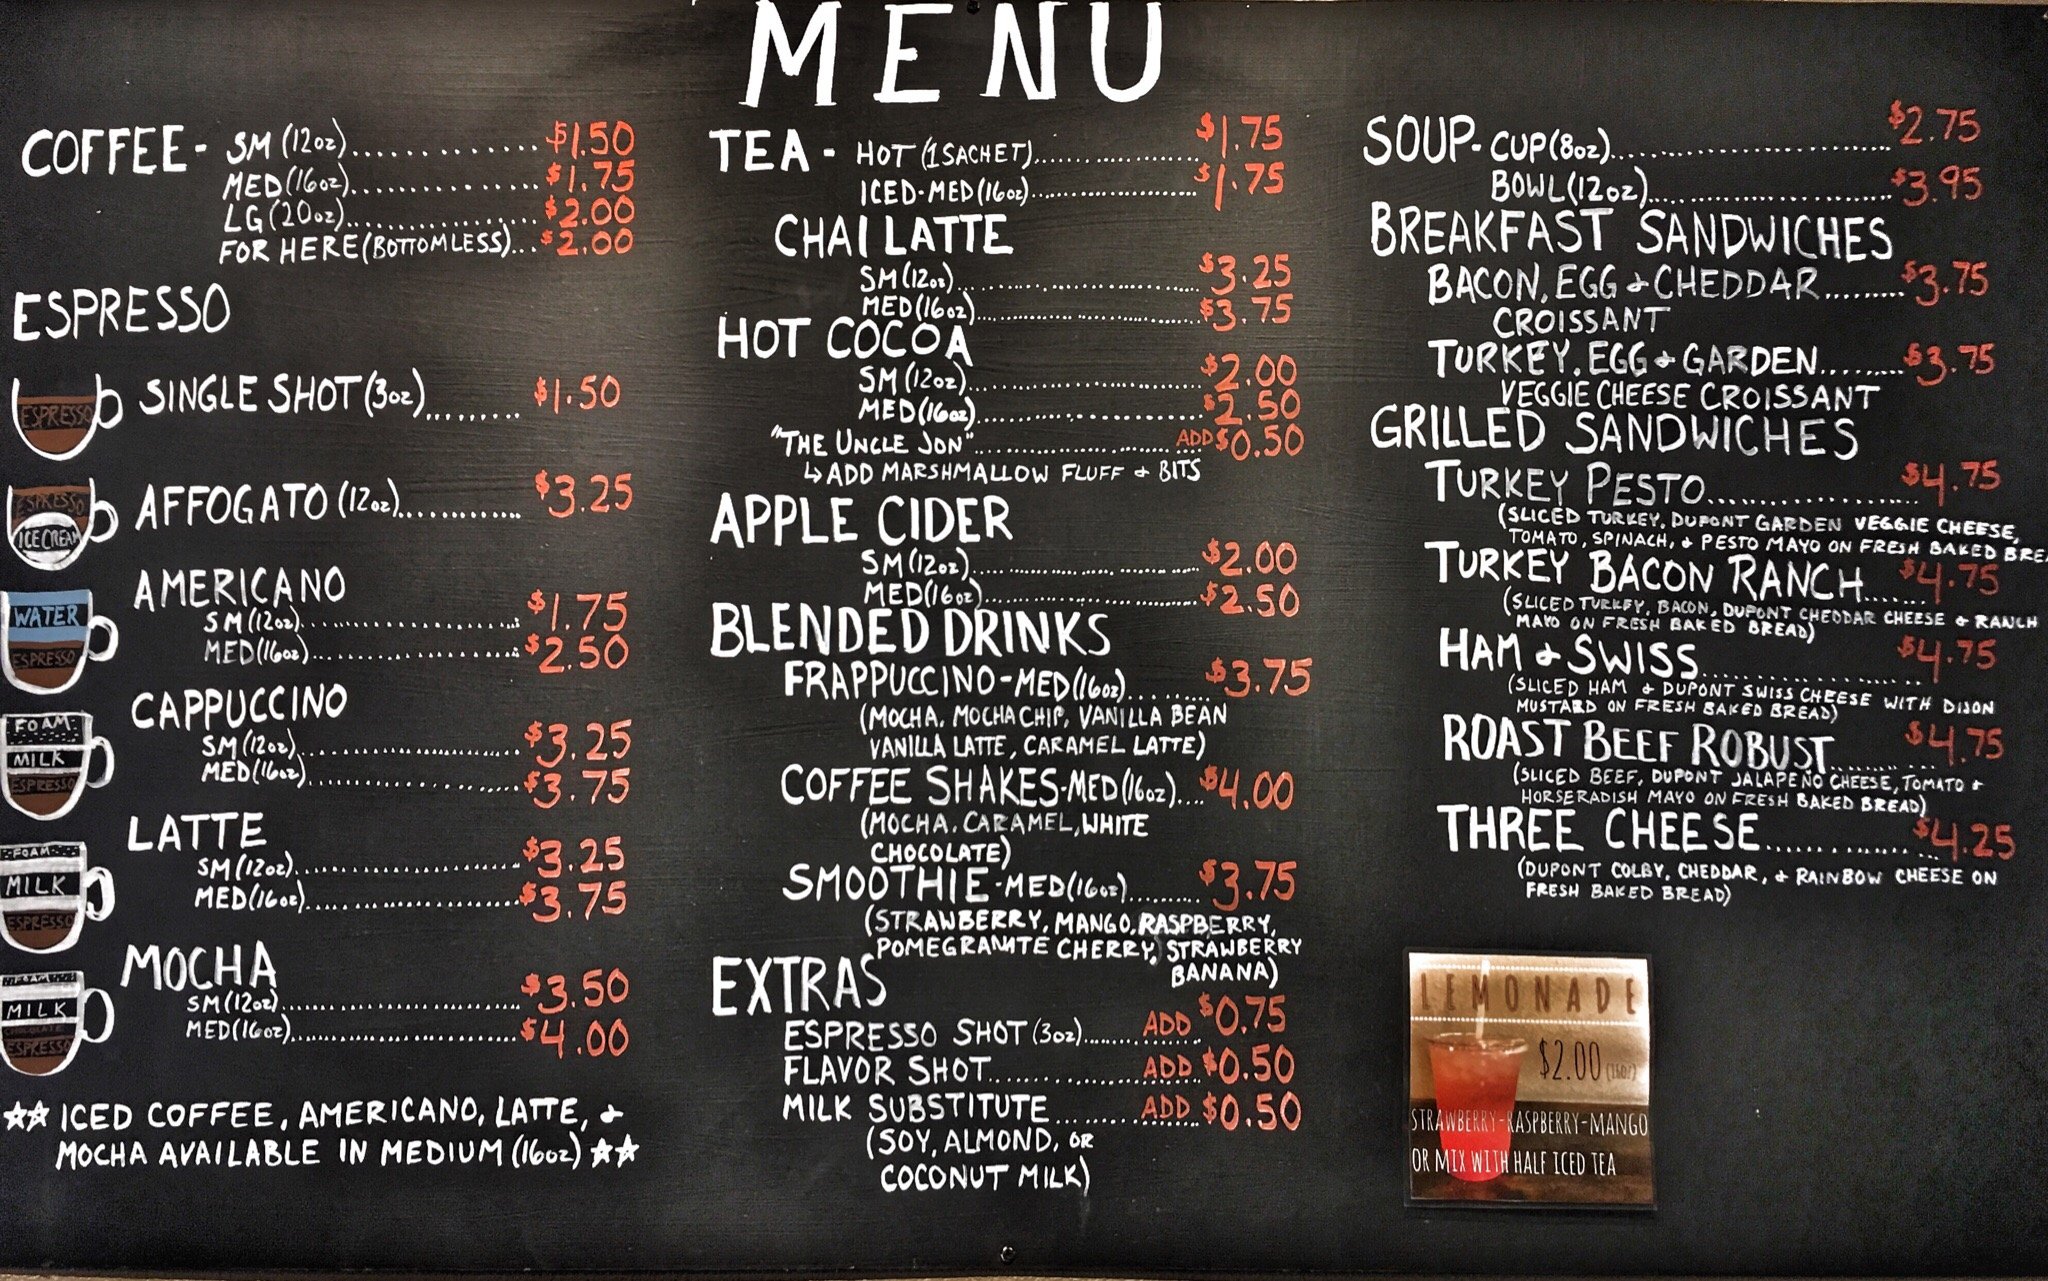 MENU
COFFEE- SM (12oz)............. $1.50
MED (16oz)............. $1.75
LG (20oz)............. $2.00
FOR HERE (BOTTOMLESS)... $2.00
ESPRESSO
ESPRESSO
SINGLE SHOT (3oz)........ $1.50
ESPRESSO
ICE CREAM
AFFOGATO (12oz)............ $3.25
WATER
ESPRESSO
AMERICANO
SM (12oz)..................... $1.75
MED (16oz).................... $2.50
FOAM
MILK
ESPRESSO
CAPPUCCINO
SM (12oz)..................... $3.25
MED (16oz).................... $3.75
FOAM
MILK
ESPRESSO
LATTE
SM (12oz)..................... $3.25
MED (16oz).................... $3.75
FOAM
MILK
CHOCOLATE
ESPRESSO
MOCHA
SM (12oz)..................... $3.50
MED (16oz).................... $4.00
☆☆ ICED COFFEE, AMERICANO, LATTE, &
MOCHA AVAILABLE IN MEDIUM (16oz) ☆☆
TEA - HOT (1 SACHET)................ $1.75
ICED-MED (16oz)................ $1.75
CHAI LATTE
SM (12oz)..................... $3.25
MED (16oz).................... $3.75
HOT COCOA
SM (12oz)..................... $2.00
MED (16oz).................... $2.50
"THE UNCLE JON".................... ADD $0.50
↳ ADD MARSHMALLOW FLUFF & BITS
APPLE CIDER
SM (12oz)..................... $2.00
MED (16oz).................... $2.50
BLENDED DRINKS
FRAPPUCCINO-MED (16oz)......... $3.75
(MOCHA, MOCHA CHIP, VANILLA BEAN
VANILLA LATTE, CARAMEL LATTE)
COFFEE SHAKES-MED (16oz).... $4.00
(MOCHA, CARAMEL, WHITE
CHOCOLATE)
SMOOTHIE-MED (16oz)......... $3.75
(STRAWBERRY, MANGO, RASPBERRY,
POMEGRANATE CHERRY, STRAWBERRY
BANANA)
EXTRAS
ESPRESSO SHOT (3oz)........ ADD $0.75
FLAVOR SHOT............... ADD $0.50
MILK SUBSTITUTE........ ADD $0.50
(SOY, ALMOND, OR
COCONUT MILK)
SOUP- CUP (8oz)........................ $2.75
BOWL (12oz)........................ $3.95
BREAKFAST SANDWICHES
BACON, EGG & CHEDDAR......... $3.75
CROISSANT
TURKEY, EGG & GARDEN......... $3.75
VEGGIE CHEESE CROISSANT
GRILLED SANDWICHES
TURKEY PESTO................... $4.75
(SLICED TURKEY, DUPONT GARDEN VEGGIE CHEESE,
TOMATO, SPINACH, & PESTO MAYO ON FRESH BAKED BREA
TURKEY BACON RANCH...... $4.75
(SLICED TURKEY, BACON, DUPONT CHEDDAR CHEESE & RANCH
MAYO ON FRESH BAKED BREAD)
HAM & SWISS.................... $4.75
(SLICED HAM & DUPONT SWISS CHEESE WITH DIJON
MUSTARD ON FRESH BAKED BREAD)
ROAST BEEF ROBUST......... $4.75
(SLICED BEEF, DUPONT JALAPEÑO CHEESE, TOMATO &
HORSERADISH MAYO ON FRESH BAKED BREAD)
THREE CHEESE............... $4.25
(DUPONT COLBY, CHEDDAR, & RAINBOW CHEESE ON
FRESH BAKED BREAD)
LEMONADE
$2.00 (16oz)
STRAWBERRY-RASPBERRY-MANGO
OR MIX WITH HALF ICED TEA